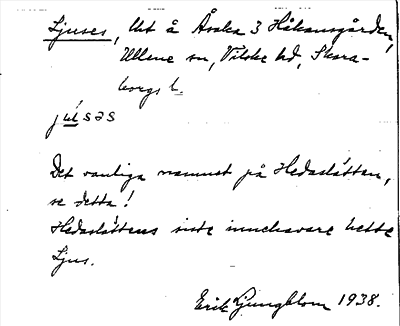 Ljuses, Ut å Åsaka 3 Håkansgården,
Ullene sn, Vilske hd, Skara-
borgs l.
júsəs
Det vanliga namnet på Hedaslätten,
se detta!
Hedaslättens siste innehavare hette
Ljus.
Erik Ljungblom 1938.